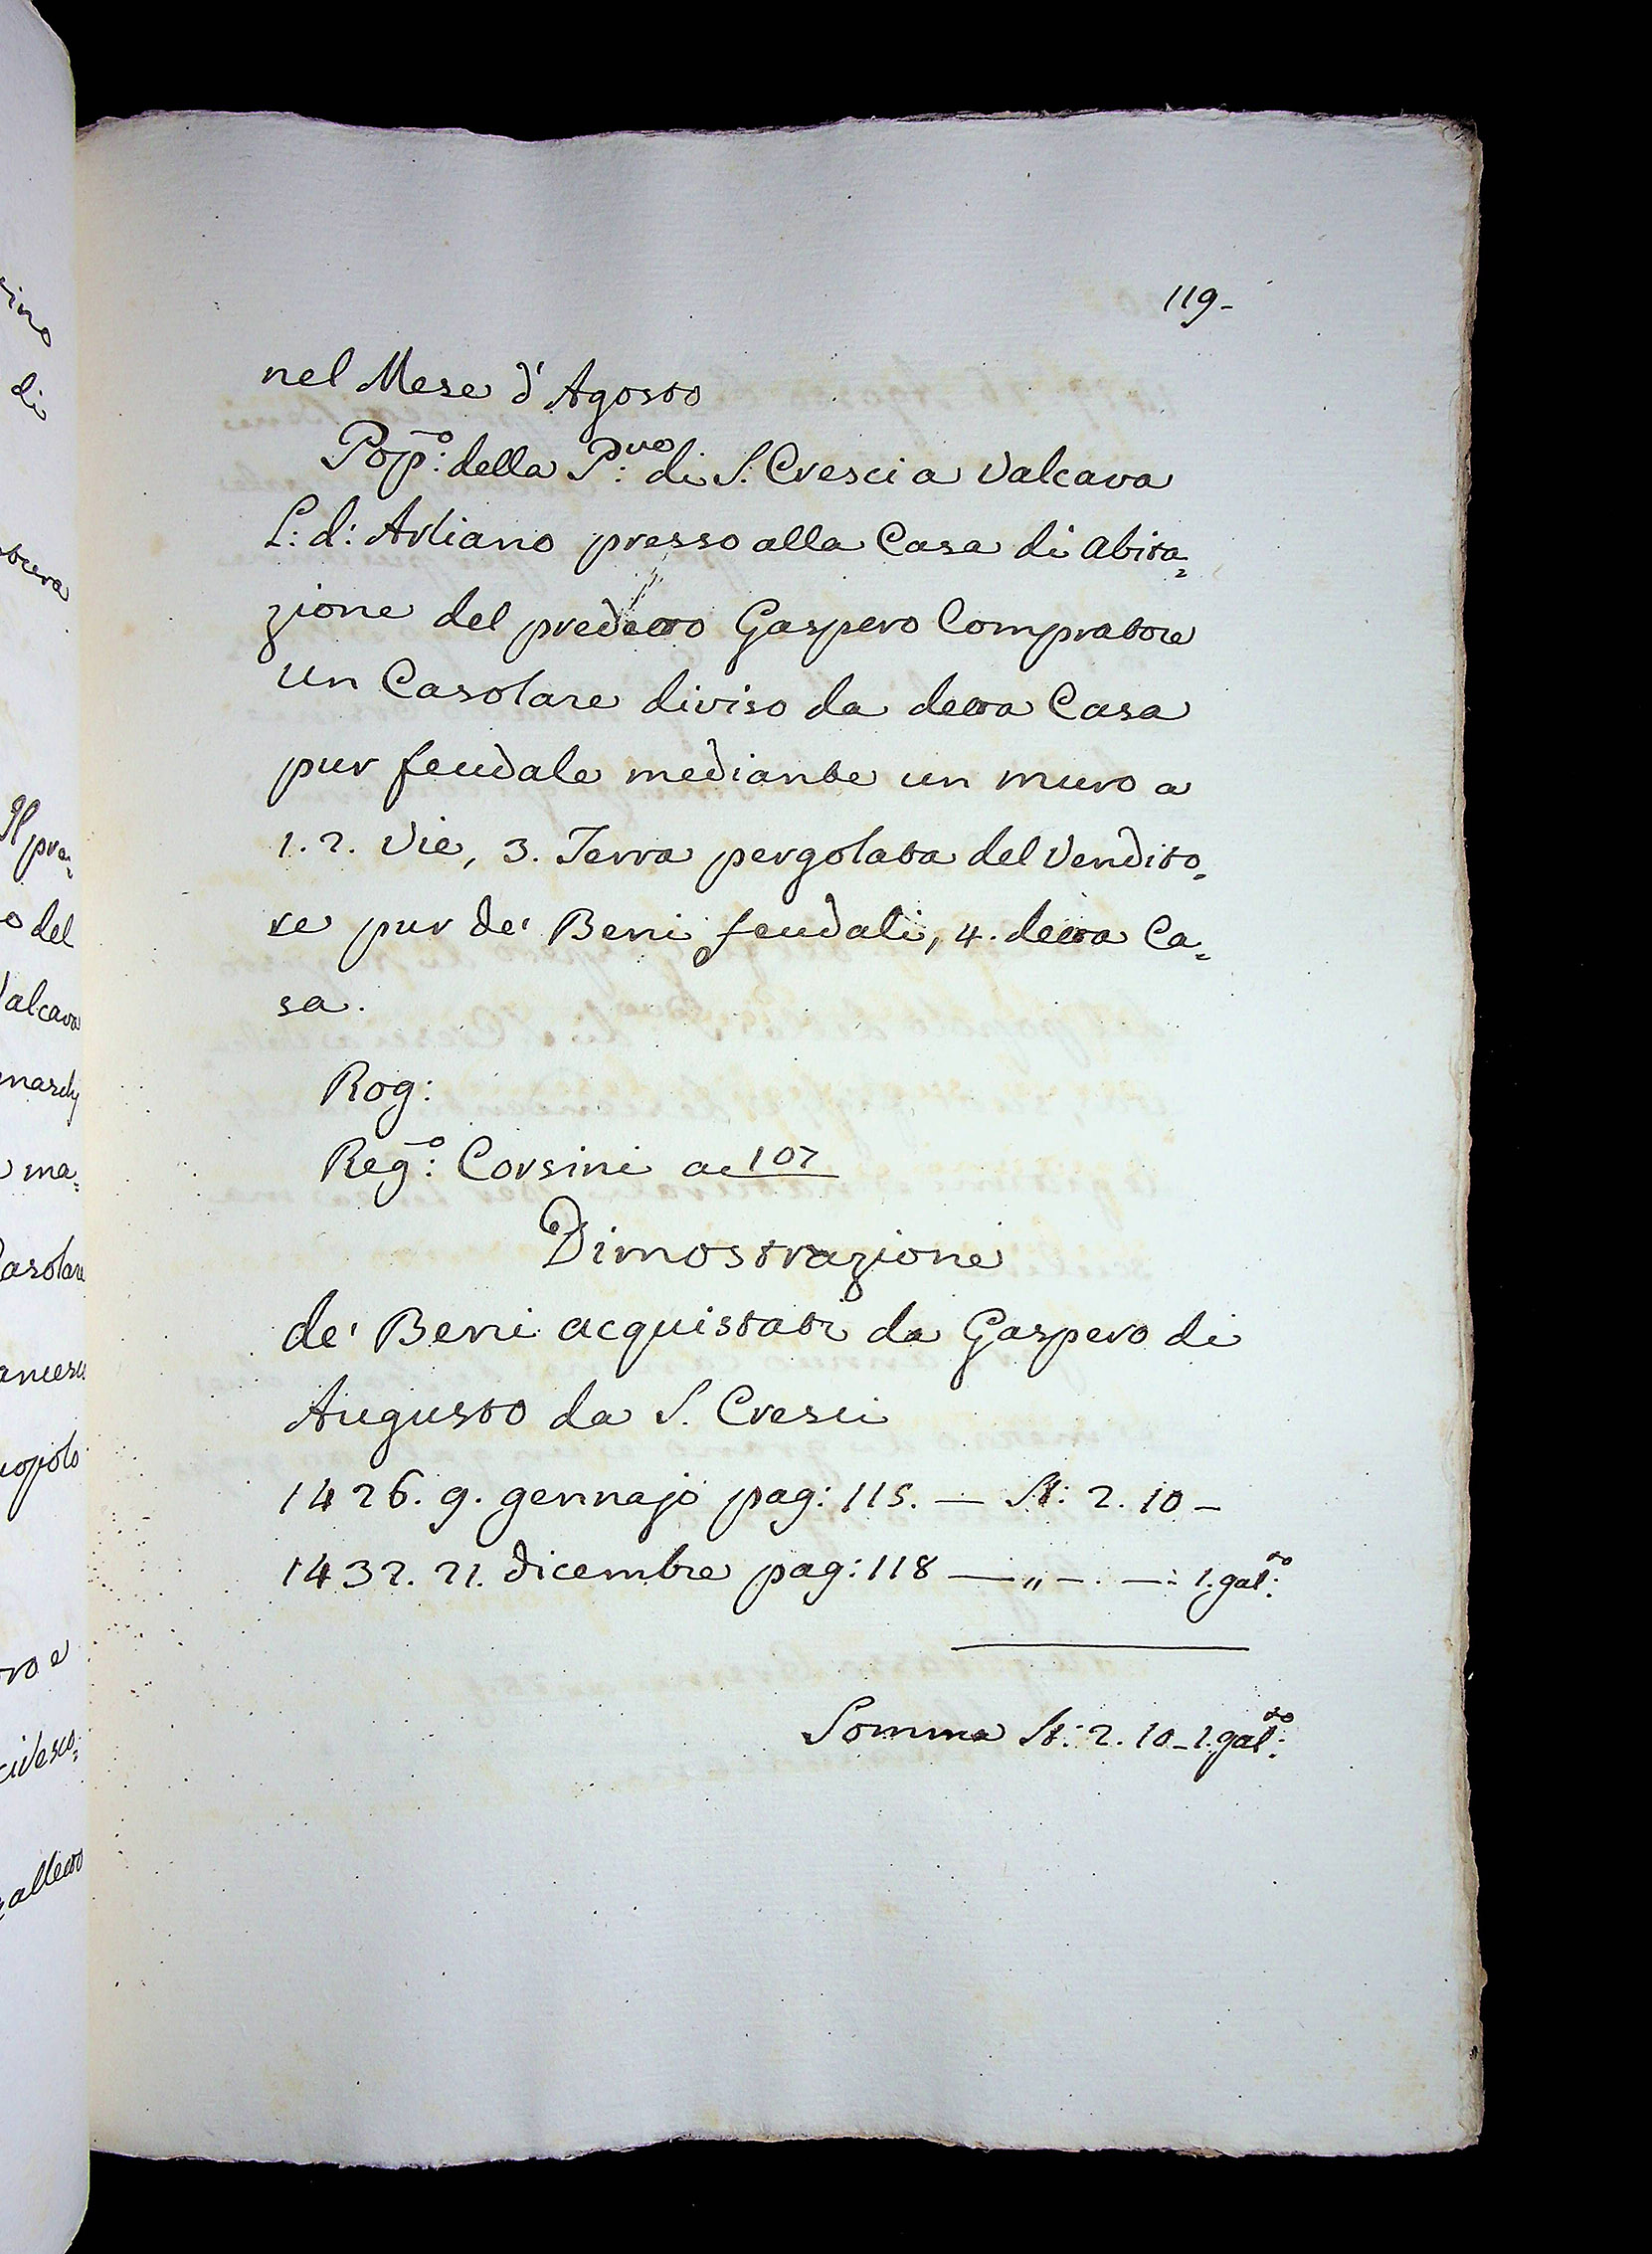 119-
nel Mese d'Agosto
Pop̄:º della P:ᵛᵉ di S. Cresci a Valcava
L: d: Arliano presso alla Casa di abita=
zione del predetto Gaspero Compratore
un Casolare diviso da detta Casa
pur feudale mediante un muro a
1. 2. Vie, 3. Terra pergolata del Vendito=
re pur de' Beni feudali, 4. detta Ca=
sa.
Rog:
Reg̅:º Corsini a 107
Dimostrazione
de' Beni acquistati da Gaspero di
Augusto da S. Cresci
1426. 9. gennajo pag: 115. — St: 2. 10 -
1432. 21. dicembre pag: 118 — „ -. —: 1. gal:ᵗᵒ
Somma St: 2. 10 - 1. gal:ᵗᵒ
di
Il pre=
o del
Valcava
ma=